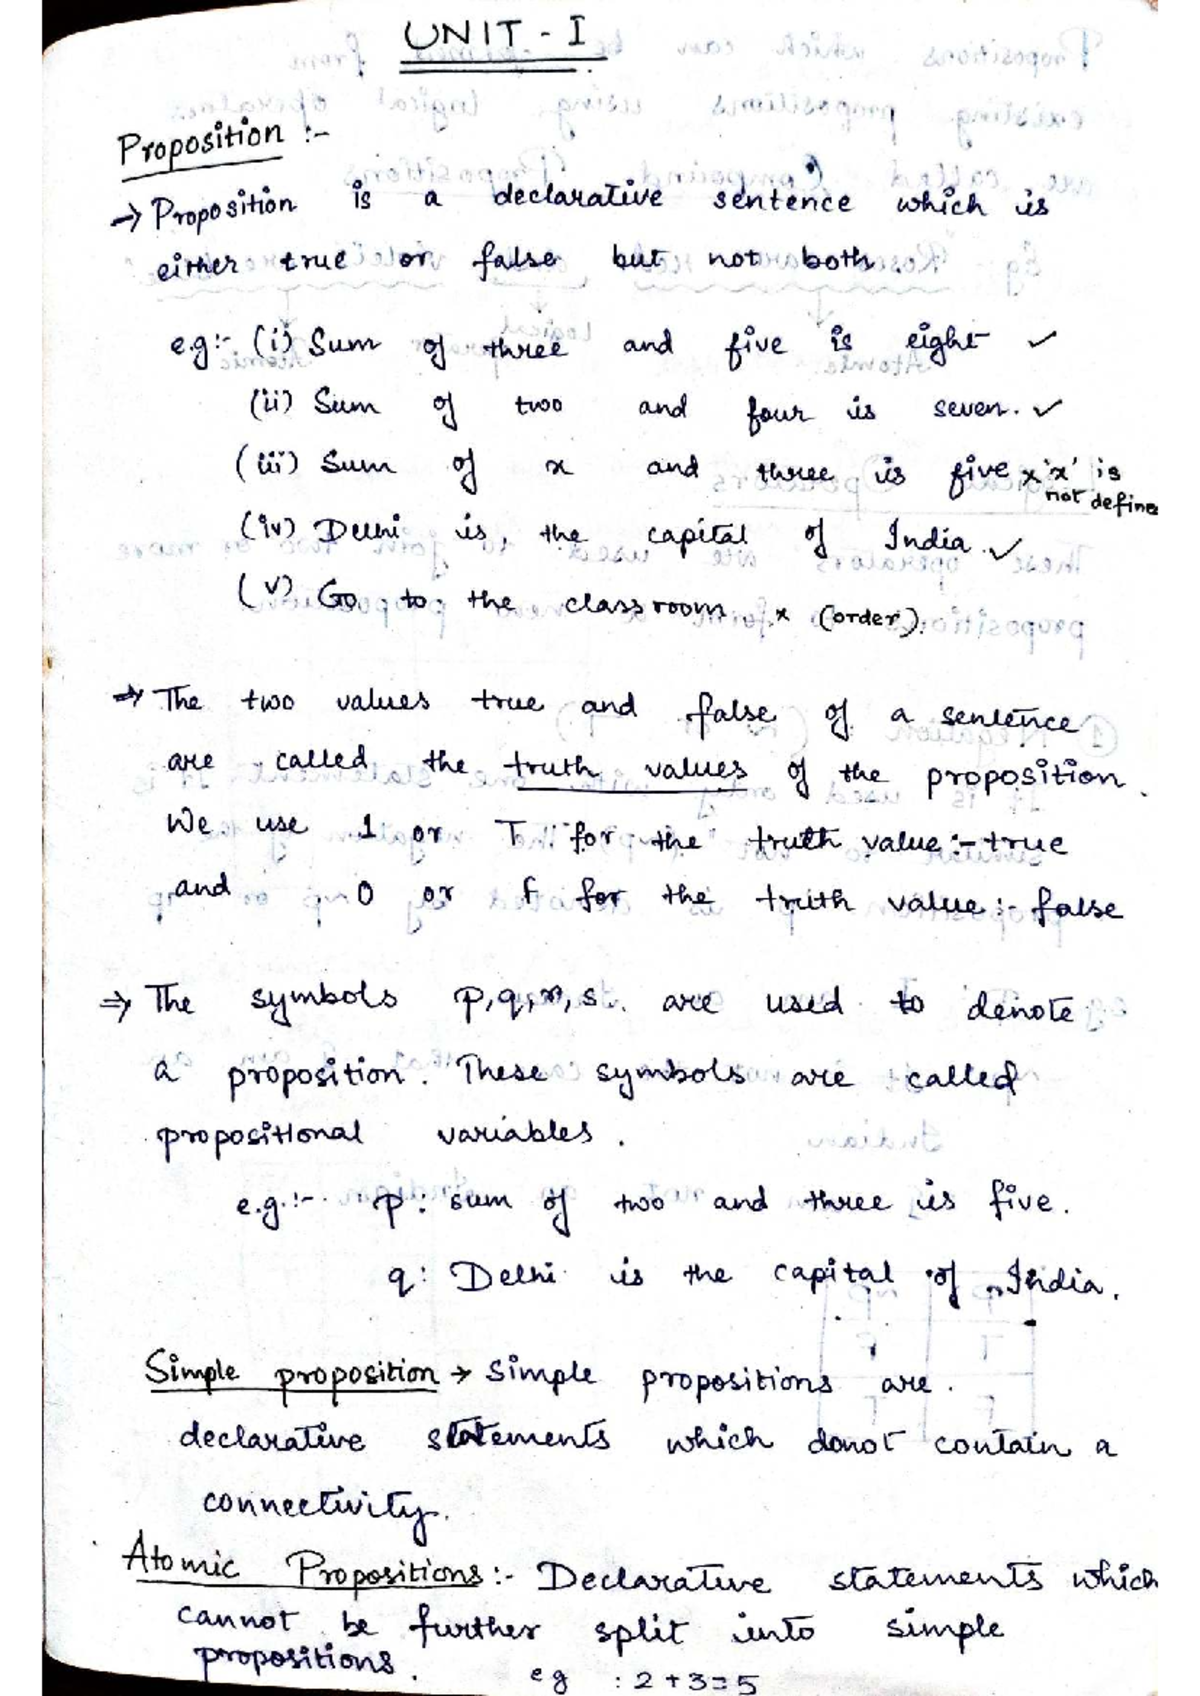 UNIT - I
Proposition :-
→ Proposition is a declarative sentence which is
either true or false but not both.
e.g:- (i) Sum of three and five is eight ✓
(ii) Sum of two and four is seven. ✓
(iii) Sum of x and three is five x 'x' is
not define
(iv) Delhi is, the capital of India. ✓
(v) Go to the classroom. x (order).
⇒ The two values true and false of a sentence
are called the truth values of the proposition.
We use 1 or T for the truth value :- true
and 0 or F for the truth value :- false
⇒ The symbols p,q,r,s. are used to denote
a proposition. These symbols are called
propositional variables.
e.g.:- p: sum of two and three is five.
q: Delhi is the capital of India.
Simple proposition → Simple propositions are.
declarative statements which donot contain a
connectivity.
Atomic Propositions :- Declarative statements which
cannot be further split into simple
propositions.
eg : 2+3=5